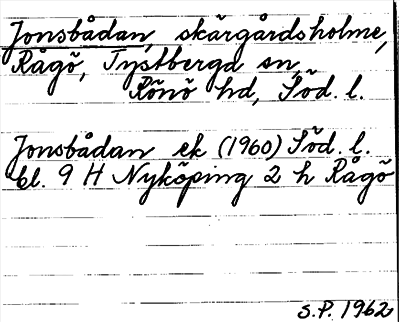 Jonsbådan, skärgårdsholme,
Rågö, Tystberga sn,
Rönö hd, Söd. l.
Jonsbådan ek (1960) Söd. l.
bl. 9 H Nyköping 2 h Rågö
S.P. 1962